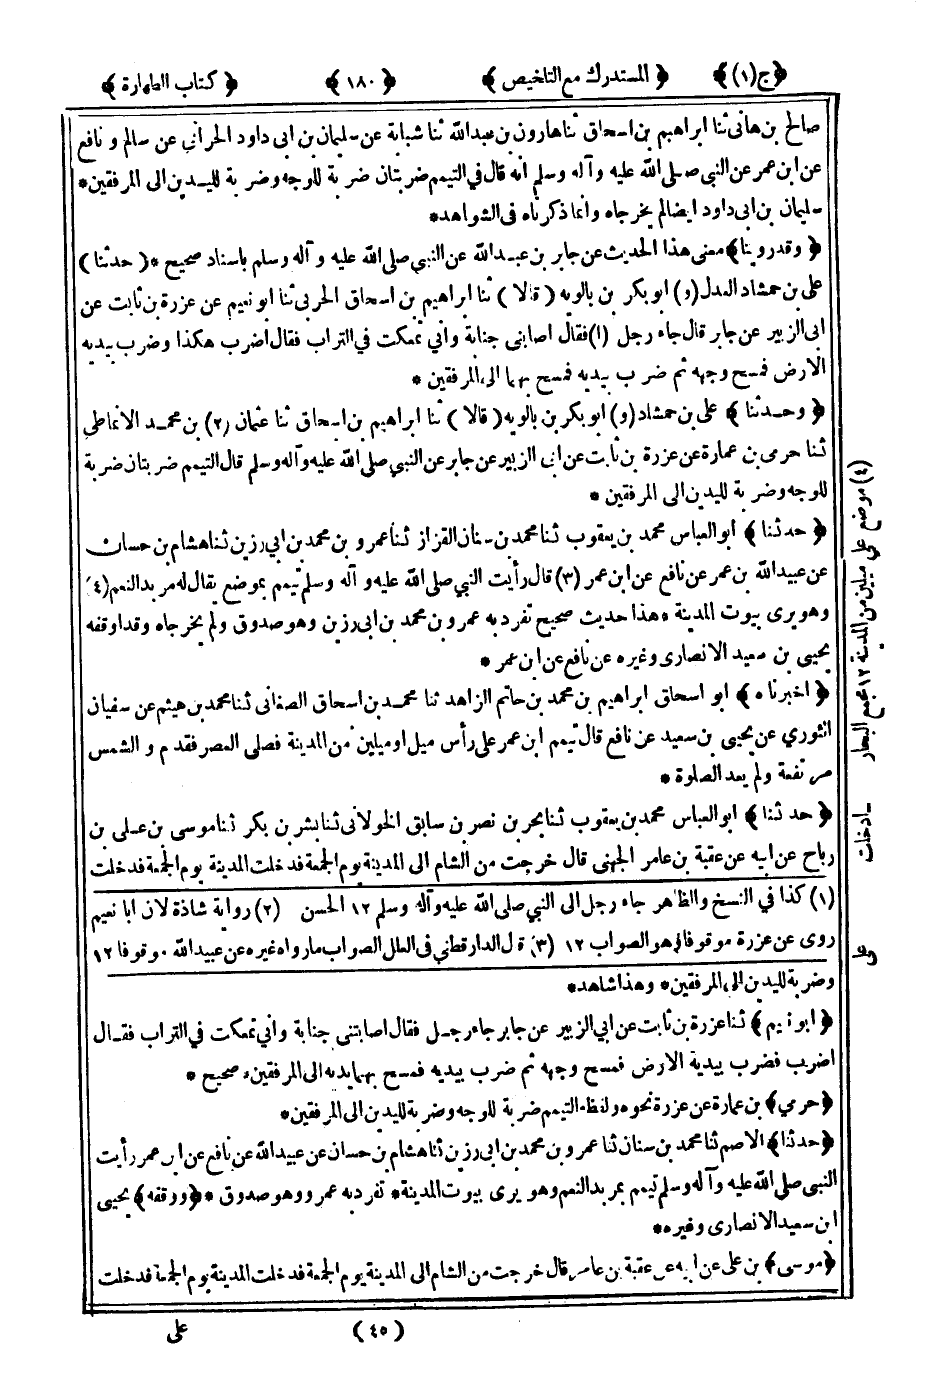 ﴿ج(١)﴾ ﴿المستدرك مع التلخيص﴾ ﴿١٨٠﴾ ﴿كتاب الطهارة﴾
صالح بن هانى ثنا ابراهيم بن اسحاق ثنا هارون بن عبدالله ثنا شبابة عن سليمان بن ابى داود الحرانى عن سالم و نافع
عن ابن عمر عن النبى صلى الله عليه وآله وسلم انه قال فى التيمم ضربتان ضربة للوجه وضربة لليدين الى المرفقين*
سليمان بن ابى داود ايضا لم يخرجاه وانما ذكرناه فى الشواهد*
﴿وقد روينا﴾ معنى هذا الحديث عن جابر بن عبدالله عن النبي صلى الله عليه وآله وسلم باسناد صحيح *(حدثنا)
على بن حمشاد العدل (و) ابو بكر بن بالويه (قالا) ثنا ابراهيم بن اسحاق الحربى ثنا ابو نعيم عن عزرة بن ثابت عن
ابى الزبير عن جابر قال جاء رجل (١) فقال اصابنى جنابة وانى تمعكت في التراب فقال اضرب هكذا وضرب بيديه
الارض فمسح وجهه ثم ضرب بيديه فمسح بهما الى المرفقين *
﴿وحدثنا﴾ على بن حمشاد (و) ابو بكر بن بالويه (قالا) ثنا ابراهيم بن اسحاق ثنا عثمان (٢) بن محمد الانماطى
ثنا حرمى بن عمارة عن عزرة بن ثابت عن ابى الزبير عن جابر عن النبي صلى الله عليه وآله وسلم قال التيمم ضربتان ضربة
للوجه وضربة لليدين الى المرفقين *
﴿حدثنا﴾ ابو العباس محمد بن يعقوب ثنا محمد بن سنان القزاز ثنا عمرو بن محمد بن ابى رزين ثنا هشام بن حسان
عن عبيدالله بن عمر عن نافع عن ابن عمر (٣) قال رأيت النبي صلى الله عليه وآله وسلم تيمم بموضع يقال له مربد النعم (٤)
وهو يرى بيوت المدينة * هذا حديث صحيح تفرد به عمرو بن محمد بن ابى رزين وهو صدوق ولم يخرجاه وقد اوقفه
يحيى بن سعيد الانصارى وغيره عن نافع عن ابن عمر *
﴿اخبرناه﴾ ابو اسحاق ابراهيم بن محمد بن حاتم الزاهد ثنا محمد بن اسحاق الصغانى ثنا محمد بن هيثم عن سفيان
الثوري عن يحيى بن سعيد عن نافع قال تيمم ابن عمر على رأس ميل او ميلين من المدينة فصلى العصر فقدم و الشمس
مرتفعة ولم يعد الصلوة *
﴿حدثنا﴾ ابو العباس محمد بن يعقوب ثنا بحر بن نصر بن سابق الخولانى ثنا بشر بن بكر ثنا موسى بن على بن
رباح عن ابيه عن عقبة بن عامر الجهنى قال خرجت من الشام الى المدينة يوم الجمعة فدخلت المدينة يوم الجمعة فدخلت
(١) كذا في النسخ والظاهر جاء رجل الى النبي صلى الله عليه وآله وسلم ١٢ الحسن (٢) رواية شاذة لان ابا نعيم
روى عن عزرة موقوفا وهو الصواب ١٢ (٣) قال الدارقطني فى العلل الصواب ما رواه غيره عن عبيدالله موقوفا ١٢
وضربة لليدين الى المرفقين* وهذا شاهد*
﴿ابو نعيم﴾ ثنا عزرة بن ثابت عن ابي الزبير عن جابر جاء رجل فقال اصابتنى جنابة وانى تمعكت في التراب فقال
اضرب فضرب بيديه الارض فمسح وجهه ثم ضرب بيديه فمسح بهما يديه الى المرفقين * صحيح *
﴿حرمي﴾ بن عمارة عن عزرة نحوه ولفظه التيمم ضربة للوجه وضربة لليدين الى المرفقين*
﴿حدثنا﴾ الاصم ثنا محمد بن سنان ثنا عمرو بن محمد بن ابى رزين ثنا هشام بن حسان عن عبيدالله عن نافع عن ابن عمر رأيت
النبى صلى الله عليه وآله وسلم تيمم بمربد النعم وهو يرى بيوت المدينة* تفرد به عمرو وهو صدوق *﴿ووقفه﴾ يحيى
ابن سعيد الانصارى وغيره*
﴿موسى﴾ بن على عن ابيه عن عقبة بن عامر قال خرجت من الشام الى المدينة يوم الجمعة فدخلت المدينة يوم الجمعة فدخلت
(٤) موضع على ميلين من المدينة ١٢ مجمع البحار
(٤٥) على